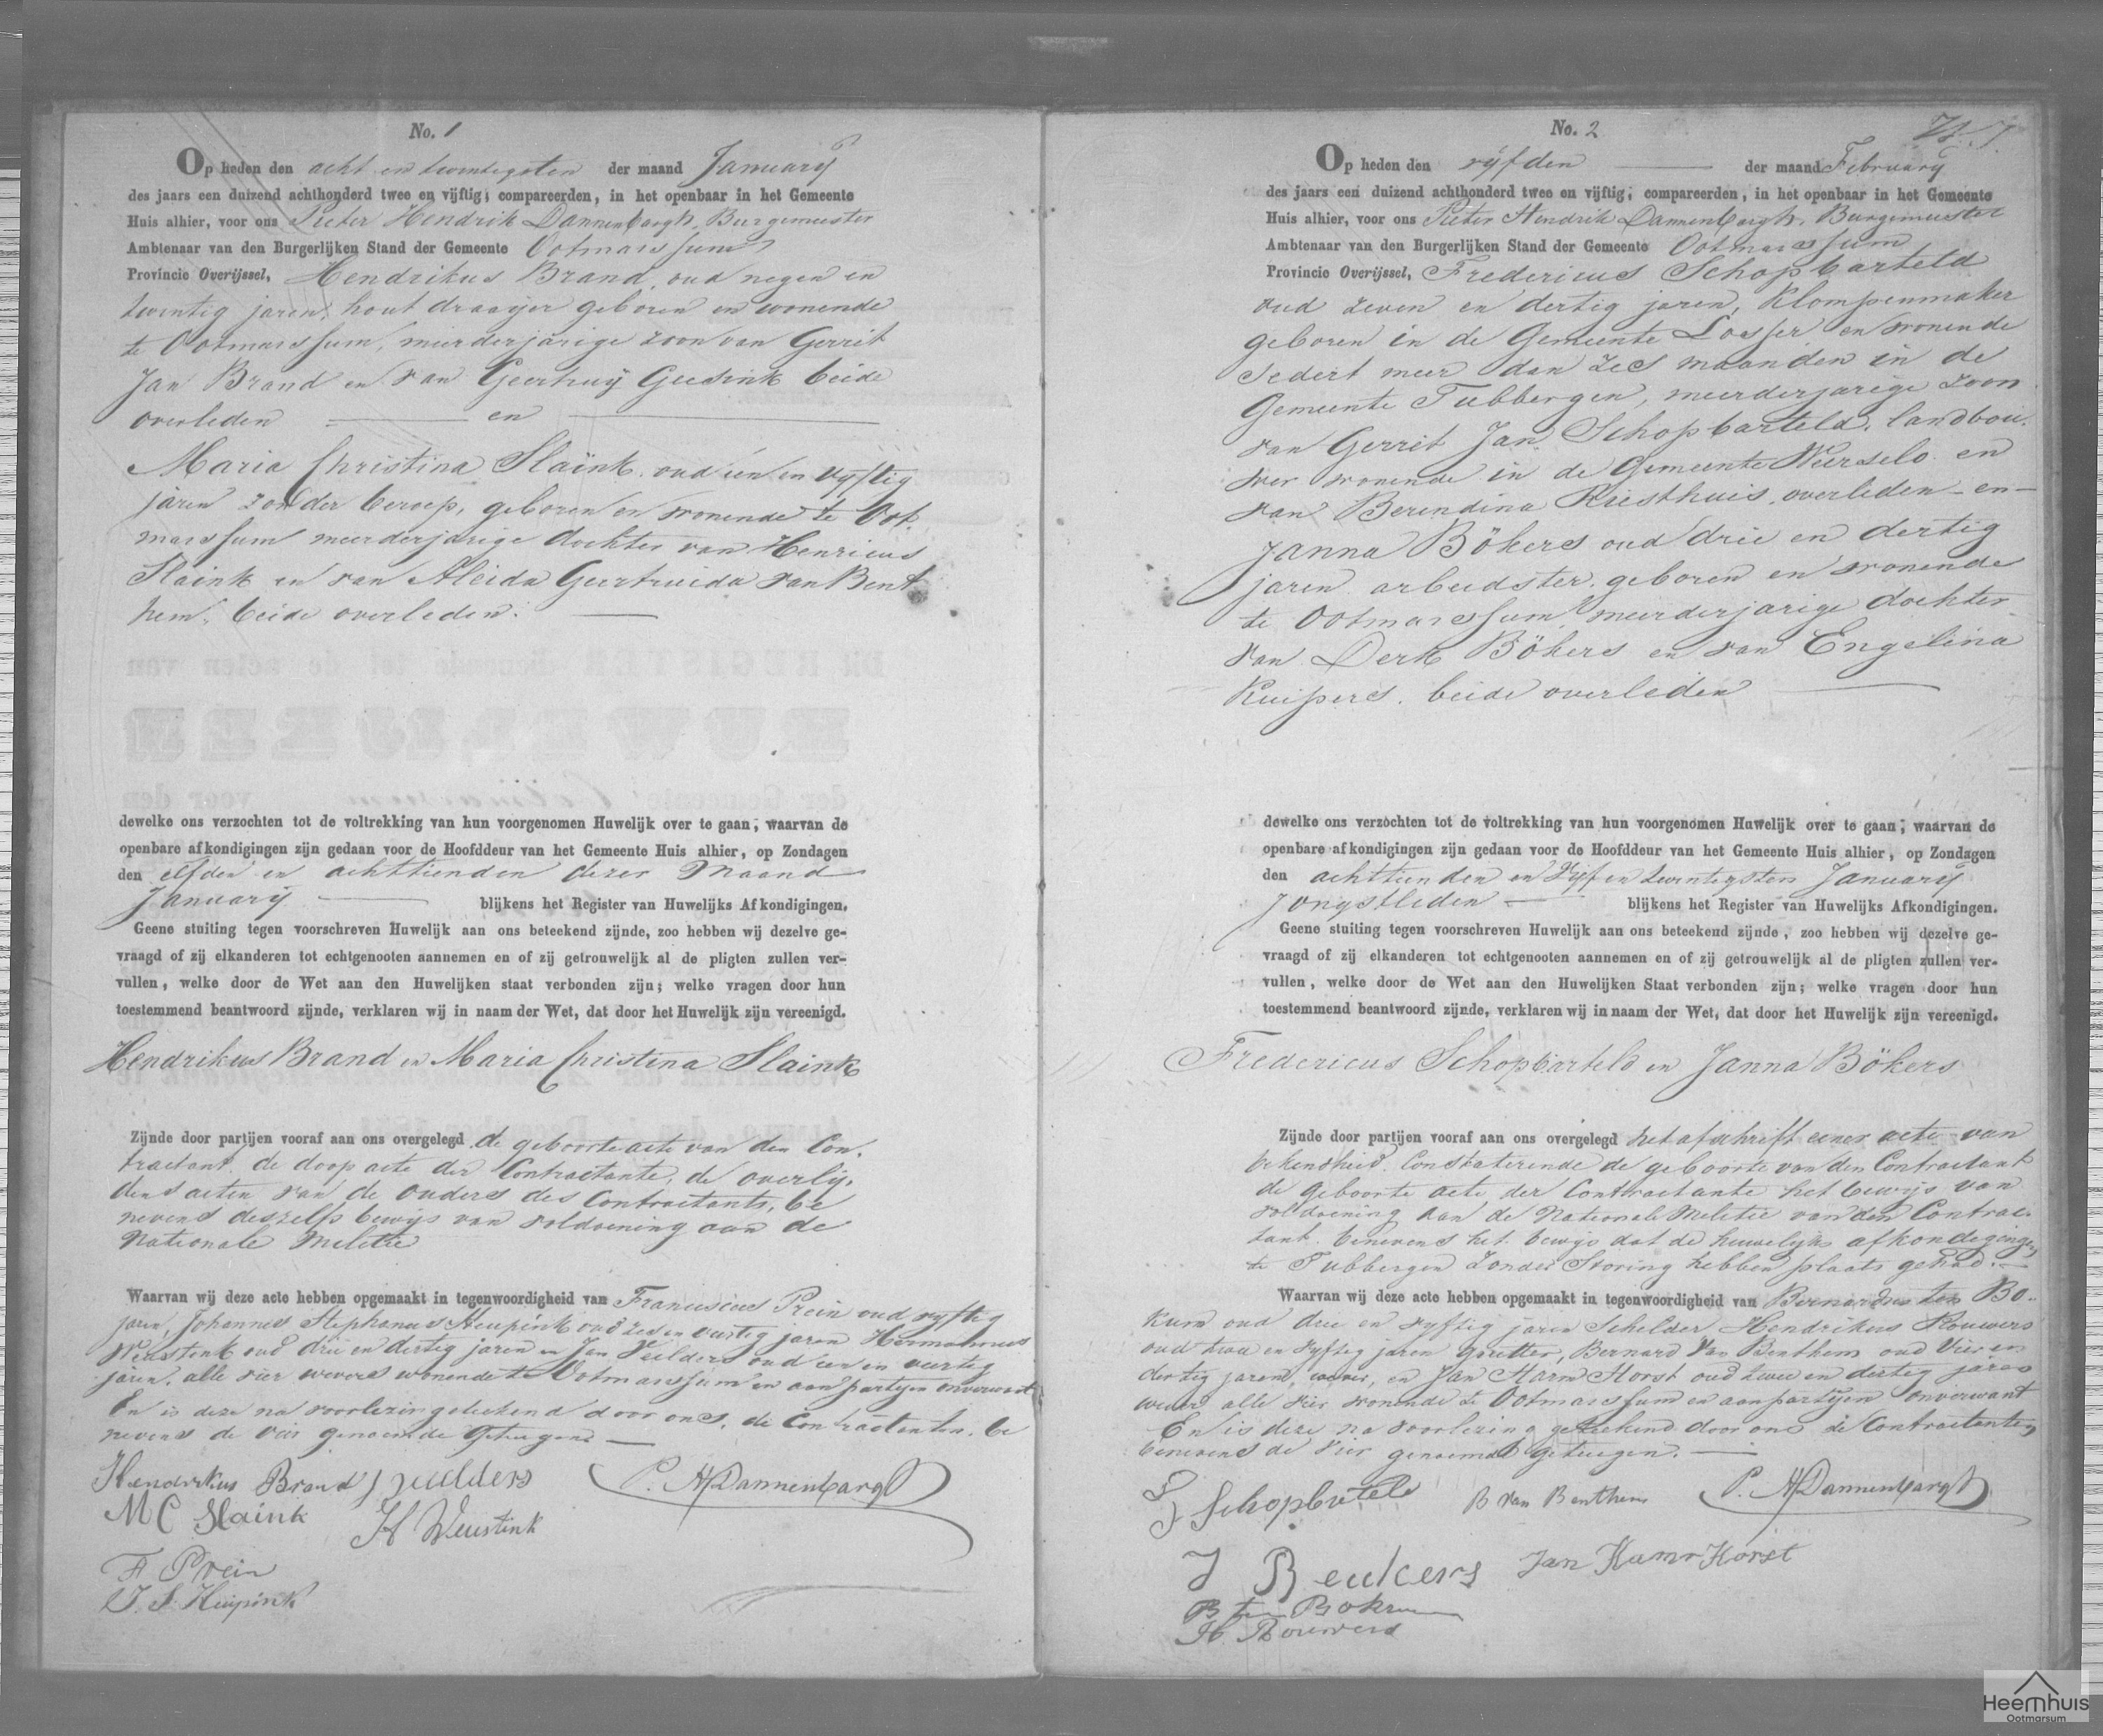 No. 1
Op heden den acht en twintigsten der maand January
des jaars een duizend achthonderd twee en vijftig, compareerden, in het openbaar in het Gemeente
Huis alhier, voor ons Pieter Hendrik Dannenbargh, Burgemeester
Ambtenaar van den Burgerlijken Stand der Gemeente Ootmarssum
Provincie Overijssel, Hendrikus Brand, oud negen en
twintig jaren, hout draayer geboren en wonende
te Ootmarssum, meerderjarige zoon van Gerrit
Jan Brand en van Geertruy Geesink beide
overleden en
Maria Christina Slaink oud een en vyftig
jaren zonder beroep, geboren en wonende te Oot
marssum meerderjarige dochter van Henricus
Slaink en van Aleida Geertruida van Bent
hem, beide overleden.
dewelke ons verzochten tot de voltrekking van hun voorgenomen Huwelijk over te gaan, waarvan de
openbare afkondigingen zijn gedaan voor de Hoofddeur van het Gemeente Huis alhier, op Zondagen
den elfden en achttienden dezer Maand
January blijkens het Register van Huwelijks Afkondigingen.
Geene stuiting tegen voorschreven Huwelijk aan ons beteekend zijnde, zoo hebben wij dezelve ge-
vraagd of zij elkanderen tot echtgenooten aannemen en of zij getrouwelijk al de pligten zullen ver-
vullen, welke door de Wet aan den Huwelijken staat verbonden zijn; welke vragen door hun
toestemmend beantwoord zijnde, verklaren wij in naam der Wet, dat door het Huwelijk zijn vereenigd.
Hendrikus Brand en Maria Christina Slaink
Zijnde door partijen vooraf aan ons overgelegd de geboorte acte van den Con-
tractant, de doop acte der Contractante, de overly-
dens acten van de ouders des Contractants, be
nevens deszelfs bewijs van voldoening aan de
Nationale Melitie
Waarvan wij deze acte hebben opgemaakt in tegenwoordigheid van Franciscus Prein oud vyftig
jaren, Johannes Stephanus Heupink oud zes en veertig jaren Hermannus
Weustink oud drie en dertig jaren en Jan Veelders oud een en veertig
jaren, alle vier wevers wonende te Ootmarssum en aan partyen onverwant
En is deze na voorlezing geteekend door ons, de Contractanten, be
nevens de vier genoemde Getuigen
Hendrikus Brand J Veelders P. H Dannenbargh
M C Slaink H Weustink
F Prein
J. S. Heupink
No. 2
Op heden den vyfden der maand February
des jaars een duizend achthonderd twee en vijftig, compareerden, in het openbaar in het Gemeente
Huis alhier, voor ons Pieter Hendrik Dannenbargh, Burgemeester
Ambtenaar van den Burgerlijken Stand der Gemeente Ootmarssum
Provincie Overijssel, Fredericus Schopbarteld
oud zeven en dertig jaren, Klompenmaker
geboren in de Gemeente Losser en wonende
sedert meer dan zes maanden in de
Gemeente Tubbergen, meerderjarige zoon
van Gerrit Jan Schopbarteld, landbou-
wer wonende in de Gemeente Weerselo en
van Berendina Riesthuis, overleden - en -
Janna Bökers oud drie en dertig
jaren arbeidster, geboren en wonende
te Ootmarssum, meerderjarige dochter
van Derk Bökers en van Engelina
Kuipers, beide overleden
dewelke ons verzochten tot de voltrekking van hun voorgenomen Huwelijk over te gaan, waarvan de
openbare afkondigingen zijn gedaan voor de Hoofddeur van het Gemeente Huis alhier, op Zondagen
den achttienden en Vyf en twentigsten January
jongstleden blijkens het Register van Huwelijks Afkondigingen.
Geene stuiting tegen voorschreven Huwelijk aan ons beteekend zijnde, zoo hebben wij dezelve ge-
vraagd of zij elkanderen tot echtgenooten aannemen en of zij getrouwelijk al de pligten zullen ver-
vullen, welke door de Wet aan den Huwelijken Staat verbonden zijn; welke vragen door hun
toestemmend beantwoord zijnde, verklaren wij in naam der Wet, dat door het Huwelijk zijn vereenigd.
Fredericus Schopbarteld en Janna Bökers
Zijnde door partijen vooraf aan ons overgelegd het afschrift eener acte van
bekendheid, Constaterende de geboorte van den Contractant
de geboorte acte der Contractante het bewijs van
voldoening aan de Nationale Melitie van den Contrac-
tant, benevens het bewys dat de huwelyks afkondigingen
te Tubbergen zonder Storing hebben plaats gehad.
Waarvan wij deze acte hebben opgemaakt in tegenwoordigheid van Bernardus ten Bo-
kum oud drie en vyftig jaren Schelder, Hendrikus Rouwers
oud twee en vyftig jaren, Bernard Van Benthem oud Vier en
dertig jaren, wever, en Jan Harm Horst oud twee en dertig jaren
wever, alle vier wonende te Ootmarssum en aan partyen onverwant
En is deze na voorlezing geteekend door ons de Contractanten,
benevens de vier genoemde getuigen.
F Schopbarteld B van Benthem P. H Dannenbargh
J Beukers Jan Harm Horst
B ten Bokum
H. Rouwers
Heemhuis
Ootmarsum